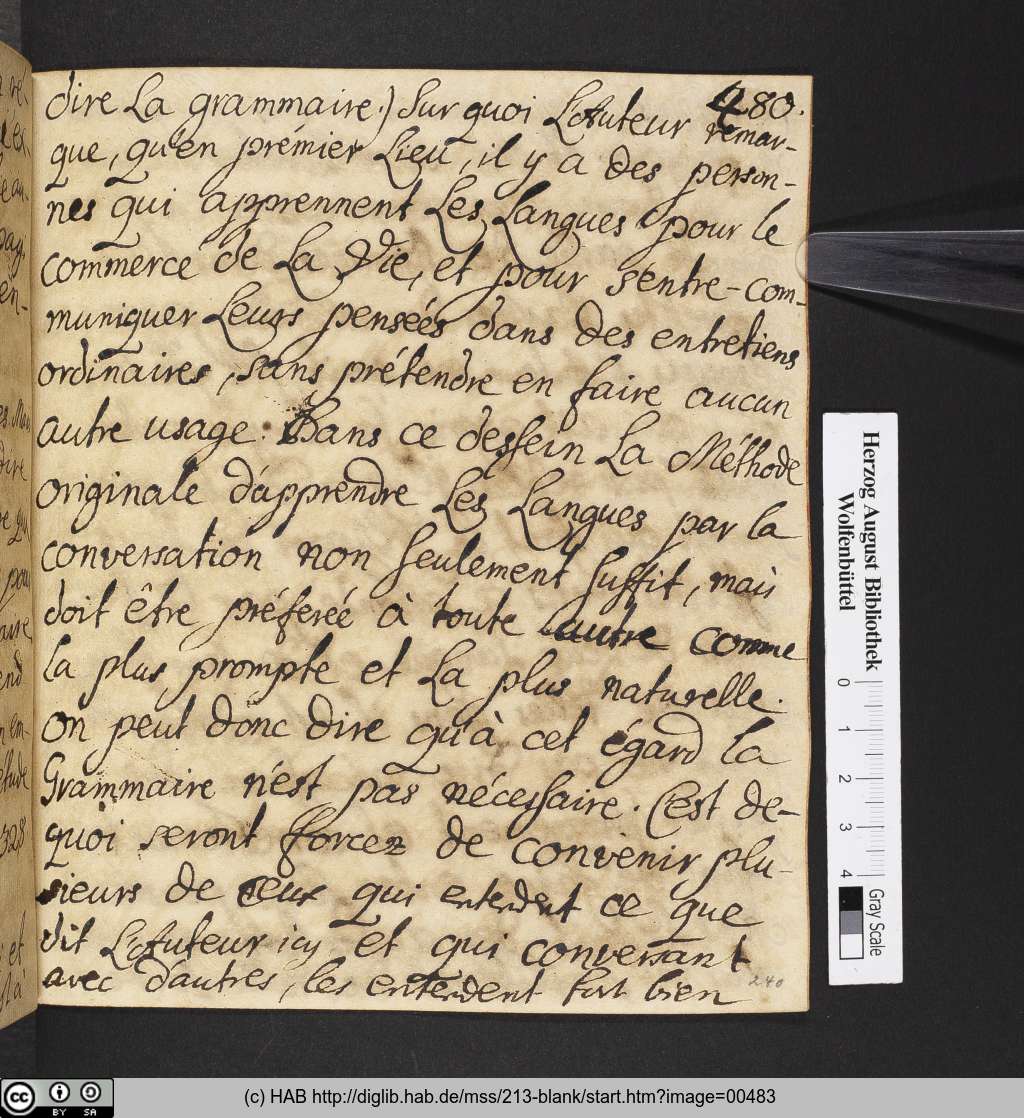 480.
dire La grammaire.) Sur quoi L'Auteur remar-
que, qu'en prémier Lieu, il y a des person-
nes qui apprennent Les Langues pour le
commerce de La Vie, et pour s'entre-com-
muniquer Leurs penseés dans des entretiens
ordinaires, sans prétendre en faire aucun
autre usage. Dans ce dessein La Méthode
originale d'apprendre Les Langues par la
conversation non seulement suffit, mais
doit être préfereé à toute autre comme
la plus prompte et La plus naturelle.
On peut donc dire qu'à cet égard la
Grammaire n'est pas nécessaire. C'est de-
quoi seront forcez de convenir plu-
sieurs de ceux qui entendent ce que
dit L'Auteur icy et qui conversant
avec d'autres, les entendent fort bien
240
Herzog August Bibliothek
Wolfenbüttel
0 1 2 3 4
Gray Scale
cc BY SA
(c) HAB http://diglib.hab.de/mss/213-blank/start.htm?image=00483